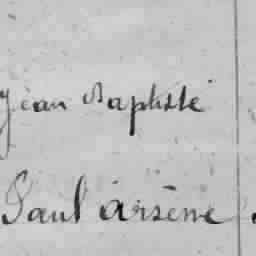 Jean Baptiste
Paul Arsène